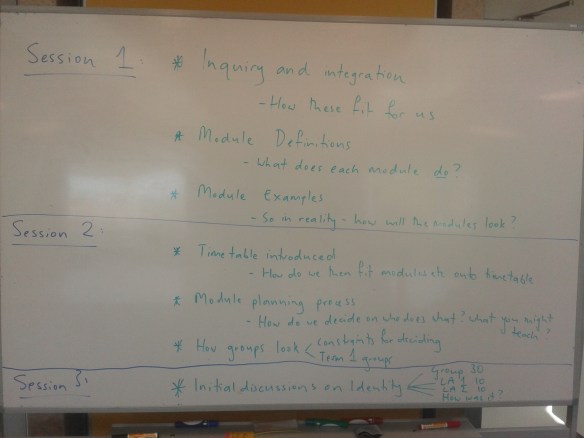 Session 1:
* Inquiry and integration
- How these fit for us
* Module Definitions
- What does each module do?
* Module Examples
- So in reality - how will the modules look?
Session 2:
* Timetable introduced
- How do we then fit modules etc onto timetable
* Module planning process
- How do we decide on who does what? what you might teach?
* How groups look < constraints for deciding
Term 1 groups
Session 3:
* Initial discussions on Identity
Group 30
10
10
How was it?